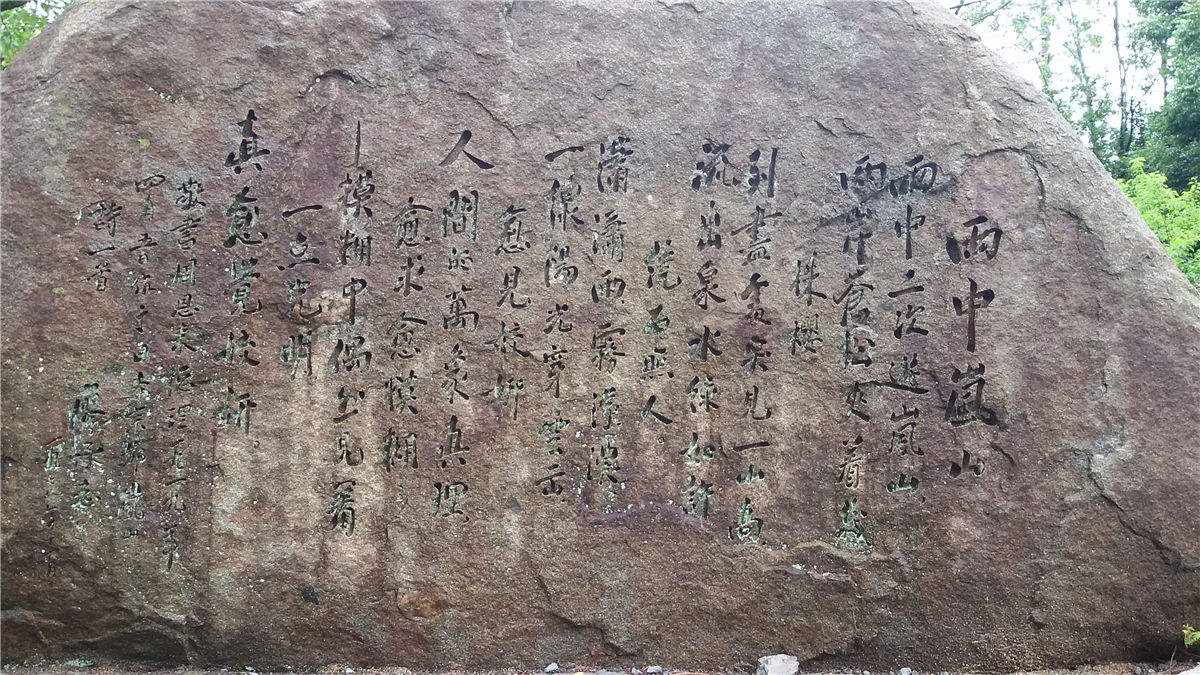 雨中嵐山
雨中二次遊嵐山
兩岸蒼松夾着幾
株櫻
到盡處突見一山高
流出泉水綠如許
繞石照人
瀟瀟雨霧濛濃
一線陽光穿雲出
愈見姣妍
人間的萬象真理
愈求愈模糊
—模糊中偶然見着
一点光明
真愈覺姣妍。
敬書周恩来總理一九一九年
四月五日日本京都嵐山
詩一首
廖承志